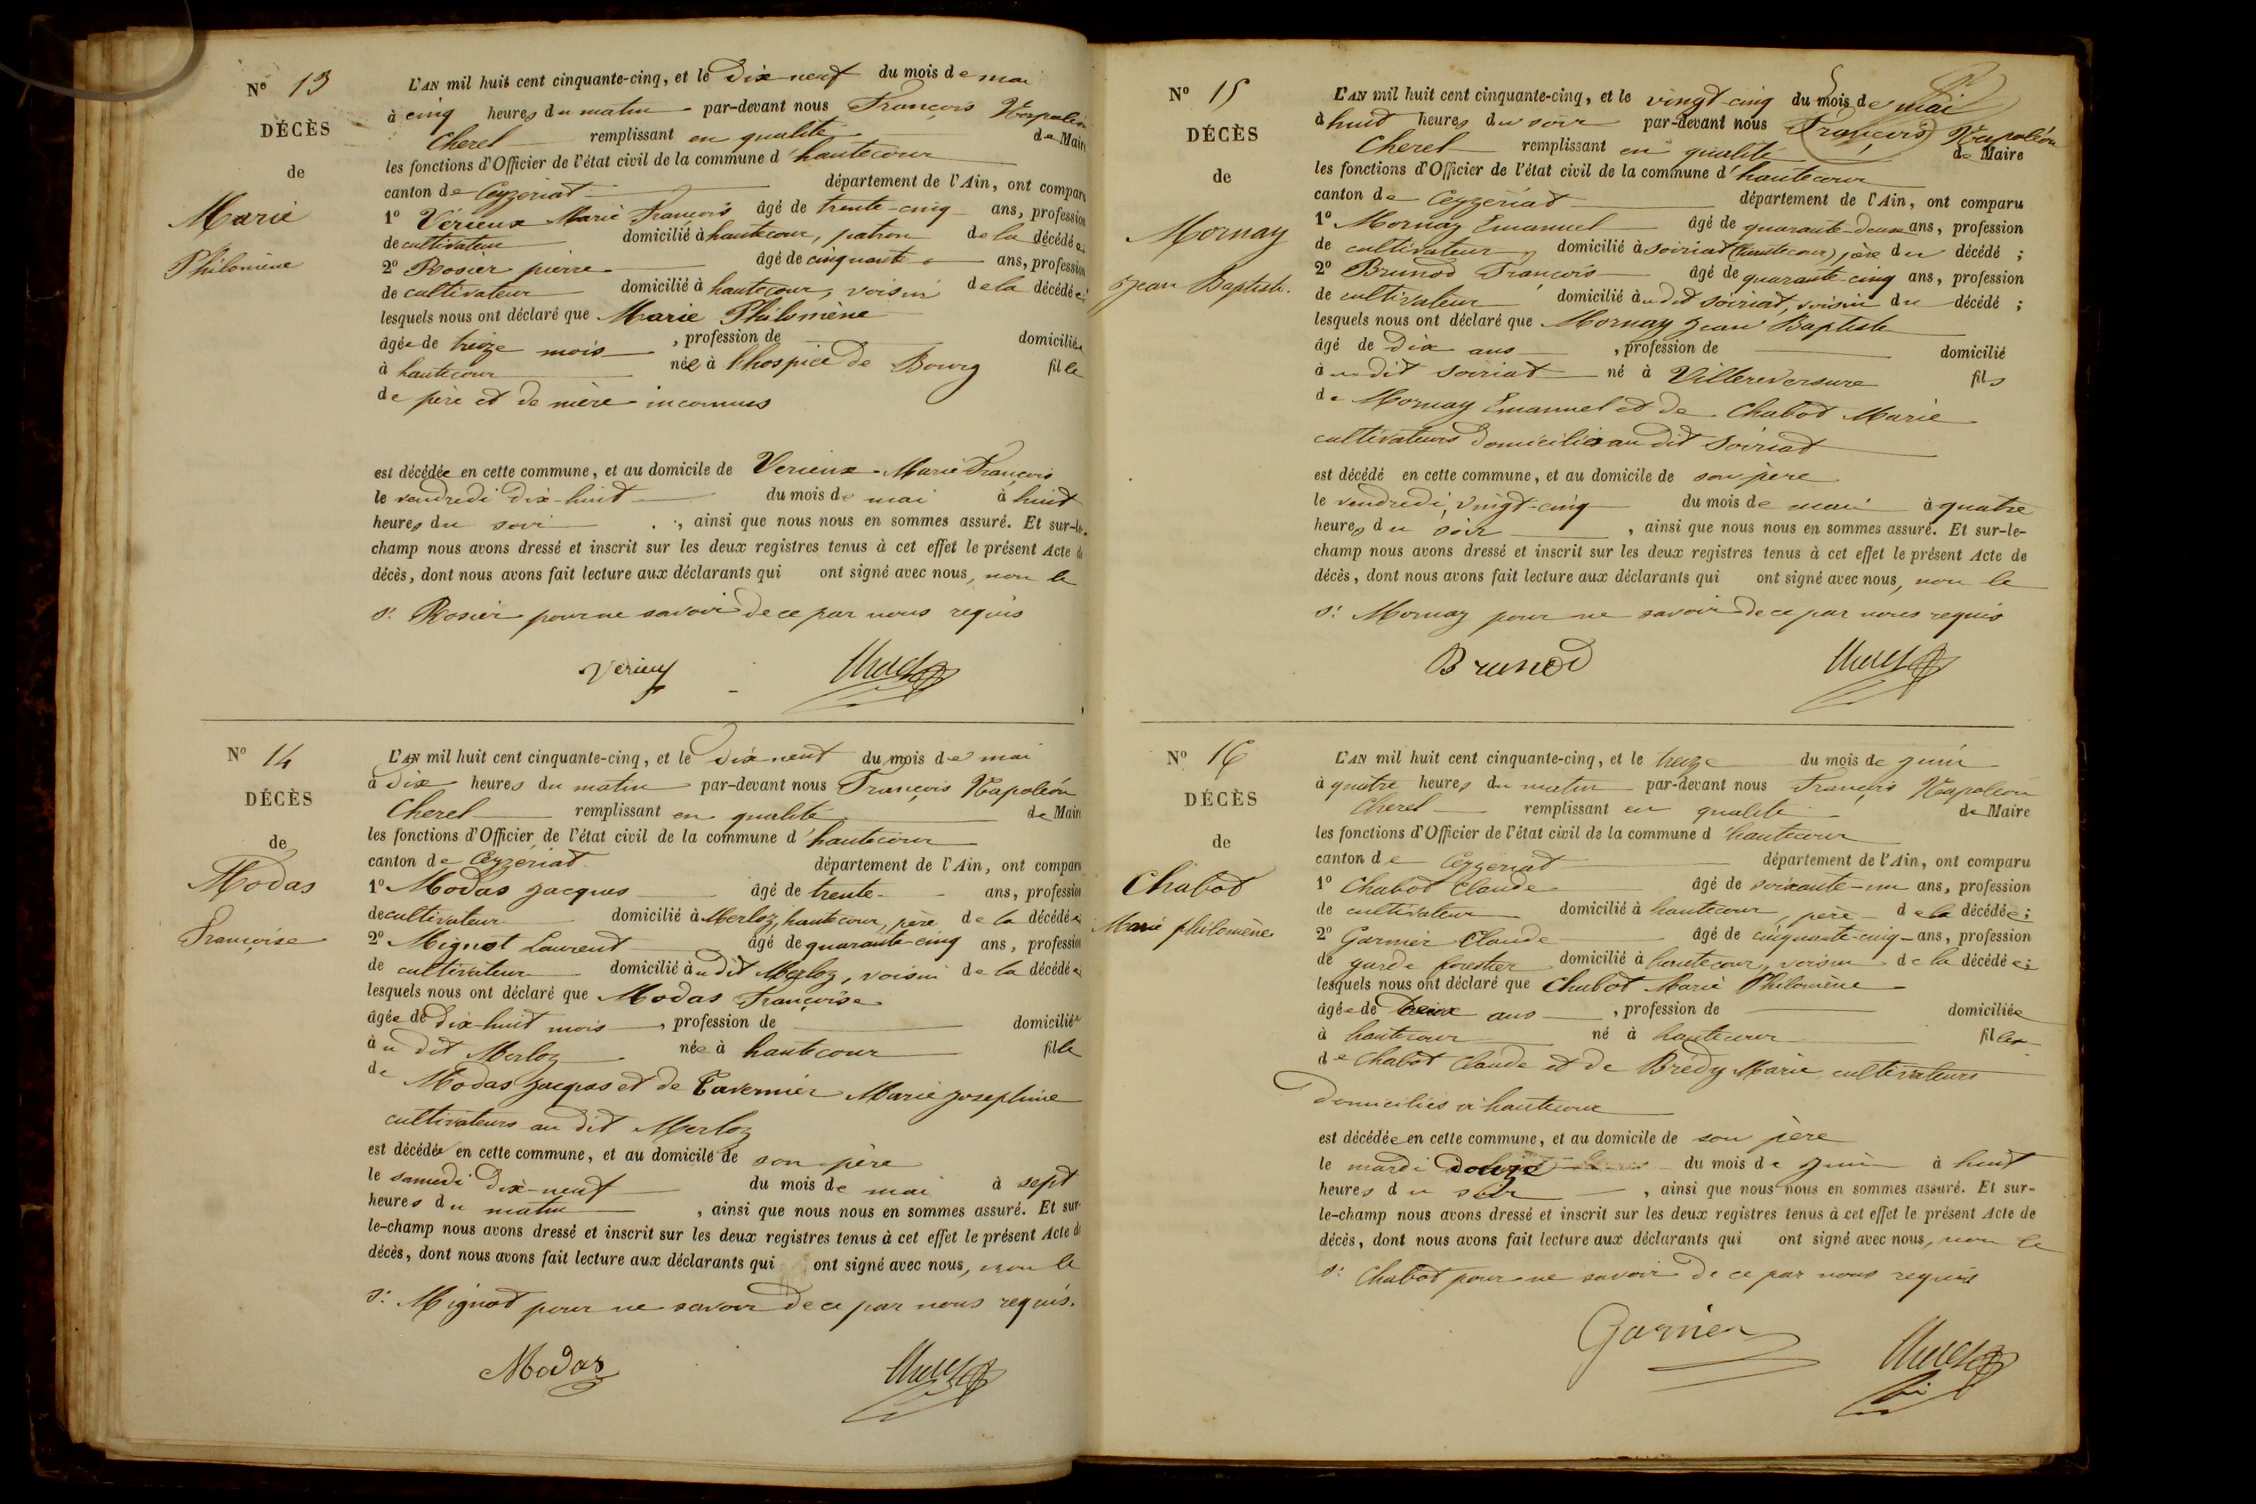 N° 13
DÉCÈS
de
Marie
Philomène
L'AN mil huit cent cinquante-cinq, et le Dix-neuf du mois de mai
à cinq heures du matin par-devant nous François Napoléon
Cherel remplissant en qualité de Maire
les fonctions d'Officier de l'état civil de la commune d'hautecour
canton de Ceyzeriat département de l'Ain, ont comparu
1° Vérieux Marie François âgé de trente-cinq ans, profession
de cultivateur domicilié à hautecour, patron de la décédée
2° Rosier pierre âgé de cinquante ans, profession
de cultivateur domicilié à hautecour, voisin de la décédée
lesquels nous ont déclaré que Marie Philomène
âgée de treize mois, profession de domiciliée
à hautecour née à l'hospice de Bourg fille
de père et de mère inconnus
est décédée en cette commune, et au domicile de Verieux Marie François
le vendredi dix-huit du mois de mai à huit
heures du soir, ainsi que nous nous en sommes assuré. Et sur-le-
champ nous avons dressé et inscrit sur les deux registres tenus à cet effet le présent Acte de
décès, dont nous avons fait lecture aux déclarants qui ont signé avec nous, non le
sr Rosier pour ne savoir de ce par nous requis
Verieux Cherel
N° 14
DÉCÈS
de
Modas
Françoise
L'AN mil huit cent cinquante-cinq, et le dix neuf du mois de mai
à dix heures du matin par-devant nous François Napoléon
Cherel remplissant en qualité de Maire
les fonctions d'Officier de l'état civil de la commune d'hautecour
canton de Ceyzeriat département de l'Ain, ont comparu
1° Modas Jacques âgé de trente ans, profession
de cultivateur domicilié à Merloz, hautecour, père de la décédée
2° Mignot Laurent âgé de quarante-cinq ans, profession
de cultivateur domicilié à u dit Merloz, voisin de la décédée
lesquels nous ont déclaré que Modas Françoise
âgée de dix-huit mois, profession de domiciliée
à u dit Merloz née à hautecour fille
de Modas Jacques et de Tavernier Marie Josephine
cultivateurs au dit Merloz
est décédée en cette commune, et au domicile de son père
le samedi dix-neuf du mois de mai à sept
heures du matin, ainsi que nous nous en sommes assuré. Et sur-
le-champ nous avons dressé et inscrit sur les deux registres tenus à cet effet le présent Acte de
décès, dont nous avons fait lecture aux déclarants qui ont signé avec nous, non le
sr Mignot pour ne savoir de ce par nous requis.
Modas Cherel
N° 15
DÉCÈS
de
Mornay
Jean Baptiste.
L'AN mil huit cent cinquante-cinq, et le vingt-cinq du mois de mai
à huit heures du soir par-devant nous François Napoléon
Cherel remplissant en qualité de Maire
les fonctions d'Officier de l'état civil de la commune d'hautecour
canton de Ceyzériat département de l'Ain, ont comparu
1° Mornay Emanuel âgé de quarante-deux ans, profession
de cultivateur domicilié à soiriat (hautecour) père du décédé ;
2° Brunod François âgé de quarante-cinq ans, profession
de cultivateur domicilié à u dit soiriat, voisin du décédé ;
lesquels nous ont déclaré que Mornay Jean Baptiste
âgé de dix ans, profession de domicilié
à u dit Soiriat né à Villereversure fils
de Mornay Emanuel et de Chabot Marie
cultivateurs domiciliés au dit Soiriat
est décédé en cette commune, et au domicile de son père
le vendredi, vingt-cinq du mois de mai à quatre
heures du soir, ainsi que nous nous en sommes assuré. Et sur-le-
champ nous avons dressé et inscrit sur les deux registres tenus à cet effet le présent Acte de
décès, dont nous avons fait lecture aux déclarants qui ont signé avec nous, non le
sr Mornay pour ne savoir de ce par nous requis
Brunod Cherel
N° 16
DÉCÈS
de
Chabot
Marie philomène
L'AN mil huit cent cinquante-cinq, et le treize du mois de juin
à quatre heures du matin par-devant nous François Napoléon
Cherel remplissant en qualité de Maire
les fonctions d'Officier de l'état civil de la commune d hautecour
canton de Ceyzeriat département de l'Ain, ont comparu
1° Chabot Claude âgé de soixante-un ans, profession
de cultivateur domicilié à hautecour, père de la décédée ;
2° Garnier Claude âgé de cinquante-cinq ans, profession
de garde forestier domicilié à hautecour, voisin de la décédée ;
lesquels nous ont déclaré que Chabot Marie Philomène
âgée de ans, profession de domiciliée
à hautecour né à hautecour fille
de Chabot Claude et de Brédy Marie cultivateurs
domiciliés à hautecour
est décédée en cette commune, et au domicile de son père
le mardi douze du mois de juin à huit
heures du soir, ainsi que nous nous en sommes assuré. Et sur-
le-champ nous avons dressé et inscrit sur les deux registres tenus à cet effet le présent Acte de
décès, dont nous avons fait lecture aux déclarants qui ont signé avec nous, non le
sr Chabot pour ne savoir de ce par nous requis
Garnier Cherel